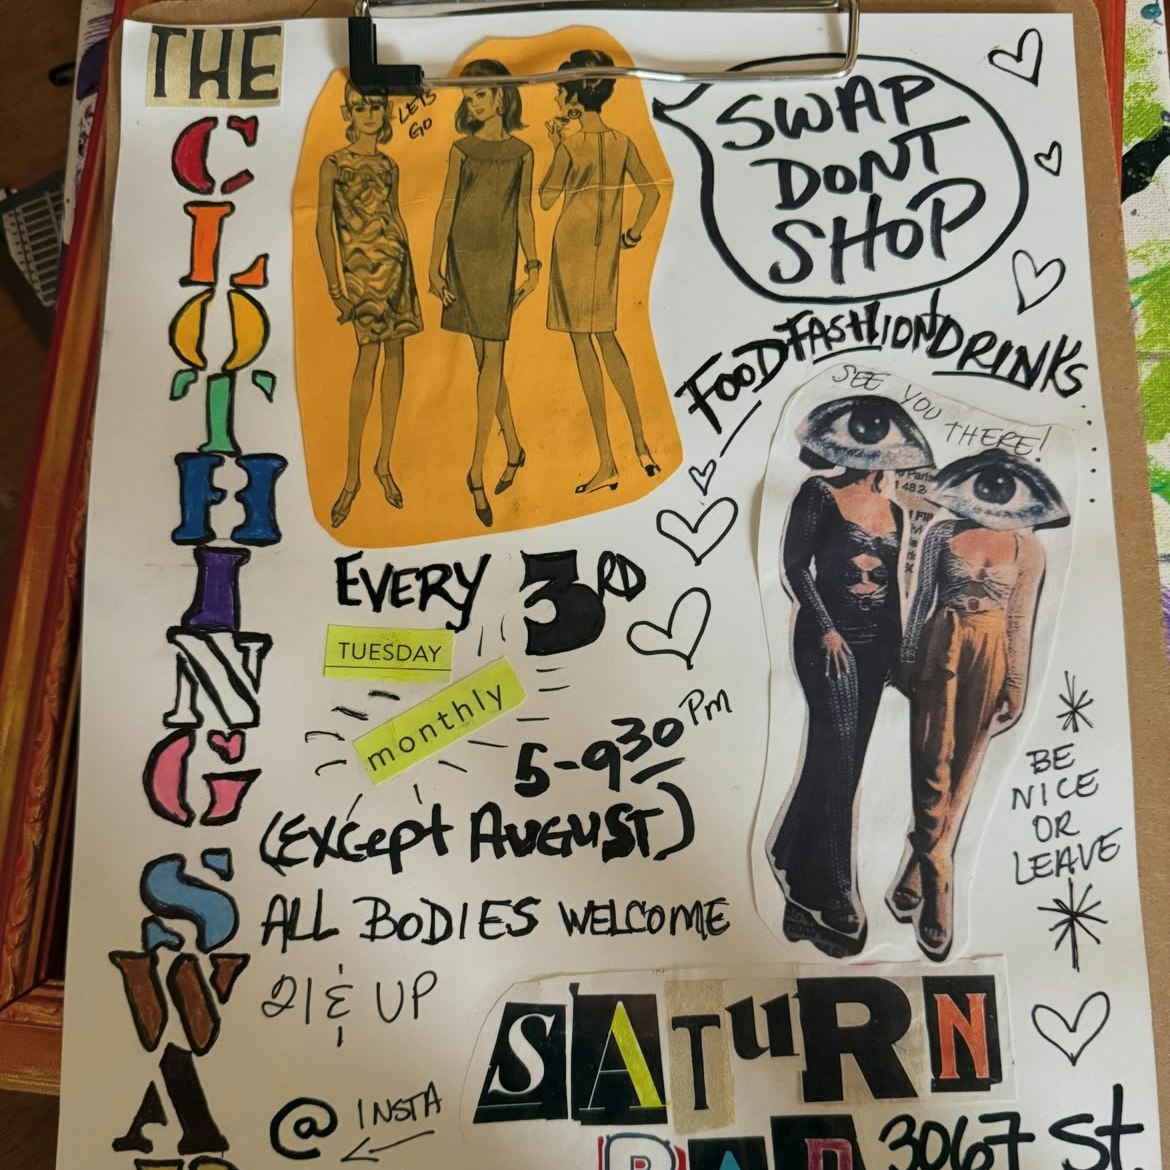 THE
CLOTHING
SWA
LETS
GO
SWAP
DONT
SHOP
FOOD FASHION DRINKS
SEE YOU
THERE!
EVERY 3RD
TUESDAY
monthly
5-930 PM
(EXCEPT AUGUST)
ALL BODIES WELCOME
21 & UP
BE
NICE
OR
LEAVE
SATURN
BAR
3067 St.
@ INSTA